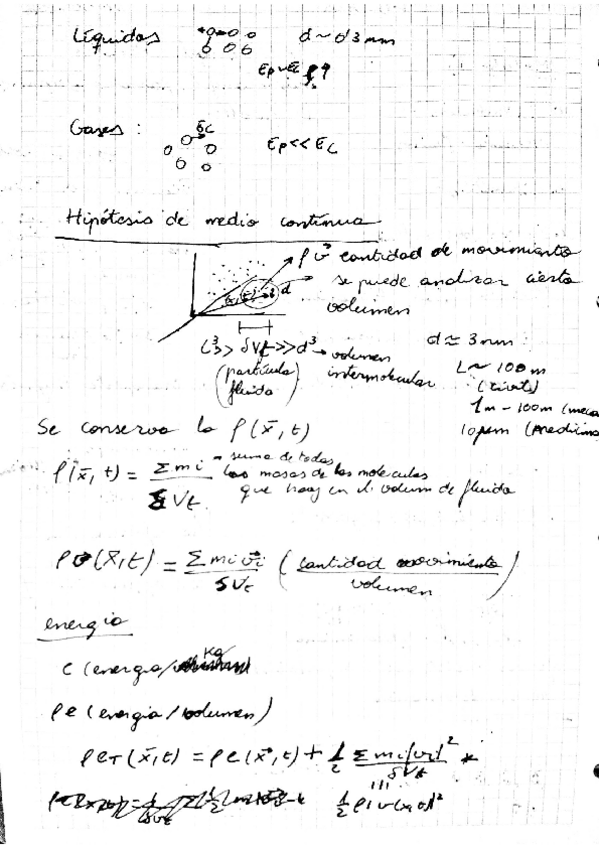 Líquidos d ~ 0'3 nm
Ep ~ Ec ρ↑
Gases : Ec Ep << Ec
Hipótesis de medio continuo
ρ v̄ cantidad de movimiento
se puede analizar cierto
volumen
d
L³ >> δVt >> d³ → volumen intermolecular
(partícula fluida)
d ≈ 3 nm
L ~ 100 m
1 m - 100 m
10 μm
Se conserva la ρ(x̄, t)
ρ(x̄, t) = Σ mi / δVt → suma de todas las masas de las moleculas
que hay en el volum de fluido
ρv̄(x̄, t) = Σ mi v̄i / δVt (cantidad movimiento / volumen)
energia
e (energia/Kg
ρe (energia / volumen)
ρeT (x̄, t) = ρe(x̄, t) + 1/2 Σ mi |vi|² / δVt *
1/2 ρ|v(x, t)|²